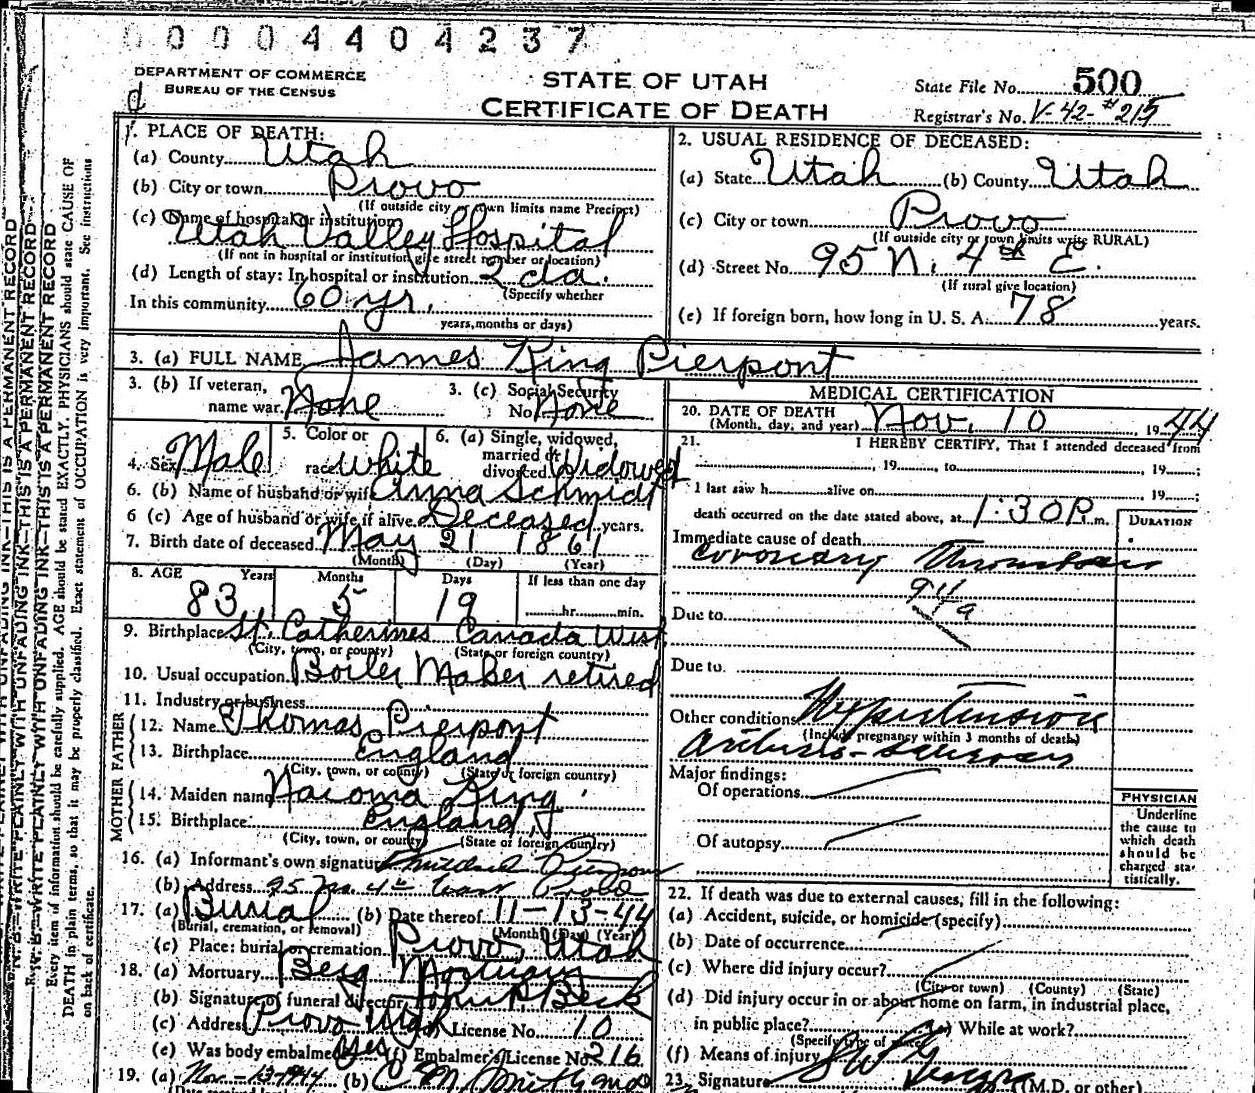 00004404237
DEPARTMENT OF COMMERCE
BUREAU OF THE CENSUS
d
STATE OF UTAH
CERTIFICATE OF DEATH
State File No. 500
Registrar's No. V-42-#215
1. PLACE OF DEATH:
(a) County Utah
(b) City or town Provo
(If outside city or town limits name Precinct)
(c) Name of hospital or institution
Utah Valley Hospital
(If not in hospital or institution give street number or location)
(d) Length of stay: In hospital or institution 2 da.
(Specify whether
In this community 60 yr.
years, months or days)
2. USUAL RESIDENCE OF DECEASED:
(a) State Utah (b) County Utah
(c) City or town Provo
(If outside city or town limits write RURAL)
(d) Street No. 95 N. 4th E.
(If rural give location)
(e) If foreign born, how long in U. S. A. 78 years.
3. (a) FULL NAME James King Pierpont
3. (b) If veteran, name war None
3. (c) Social Security No. None
4. Sex Male
5. Color or race White
6. (a) Single, widowed, married or divorced Widowed
6. (b) Name of husband or wife Anna Schmidt
6 (c) Age of husband or wife if alive Deceased years.
7. Birth date of deceased May 21 1861
(Month) (Day) (Year)
8. AGE Years Months Days If less than one day
83 5 19 hr. min.
9. Birthplace St. Catherines Canada West
(City, town, or county) (State or foreign country)
10. Usual occupation Boiler Maker retired
11. Industry or business
FATHER
12. Name Thomas Pierpont
13. Birthplace England
(City, town, or county) (State or foreign country)
MOTHER
14. Maiden name Naioma King
15. Birthplace England
(City, town, or county) (State or foreign country)
16. (a) Informant's own signature
(b) Address 95 No. 4th East Provo
17. (a) Burial (b) Date thereof 11-13-44
(Burial, cremation, or removal) (Month) (Day) (Year)
(c) Place: burial or cremation Provo, Utah
18. (a) Mortuary Berg Mortuary
(b) Signature of funeral director
(c) Address Provo Utah License No. 10
(e) Was body embalmed Yes (f) Embalmer's License No. 216
19. (a) Nov-13-1944 (b)
MEDICAL CERTIFICATION
20. DATE OF DEATH
(Month, day, and year) Nov. 10 , 1944
21. I HEREBY CERTIFY, That I attended deceased from
, 19 , to , 19 ;
I last saw h alive on , 19 ;
death occurred on the date stated above, at 1:30 P.m.
DURATION
Immediate cause of death
Coronary Thrombosis
94a
Due to
Due to
Other conditions Hypertension
(Include pregnancy within 3 months of death)
Arterio-sclerosis
Major findings:
Of operations
Of autopsy
PHYSICIAN
Underline
the cause to
which death
should be
charged sta-
tistically.
22. If death was due to external causes, fill in the following:
(a) Accident, suicide, or homicide (specify)
(b) Date of occurrence
(c) Where did injury occur?
(City or town) (County) (State)
(d) Did injury occur in or about home on farm, in industrial place,
in public place? While at work?
(Specify type of place)
(f) Means of injury
23. Signature (M.D. or other)
N. B.—WRITE PLAINLY WITH UNFADING INK—THIS IS A PERMANENT RECORD
Every item of information should be carefully supplied. AGE should be stated EXACTLY. PHYSICIANS should state CAUSE OF
DEATH in plain terms, so that it may be properly classified. Exact statement of OCCUPATION is very important. See instructions
on back of certificate.